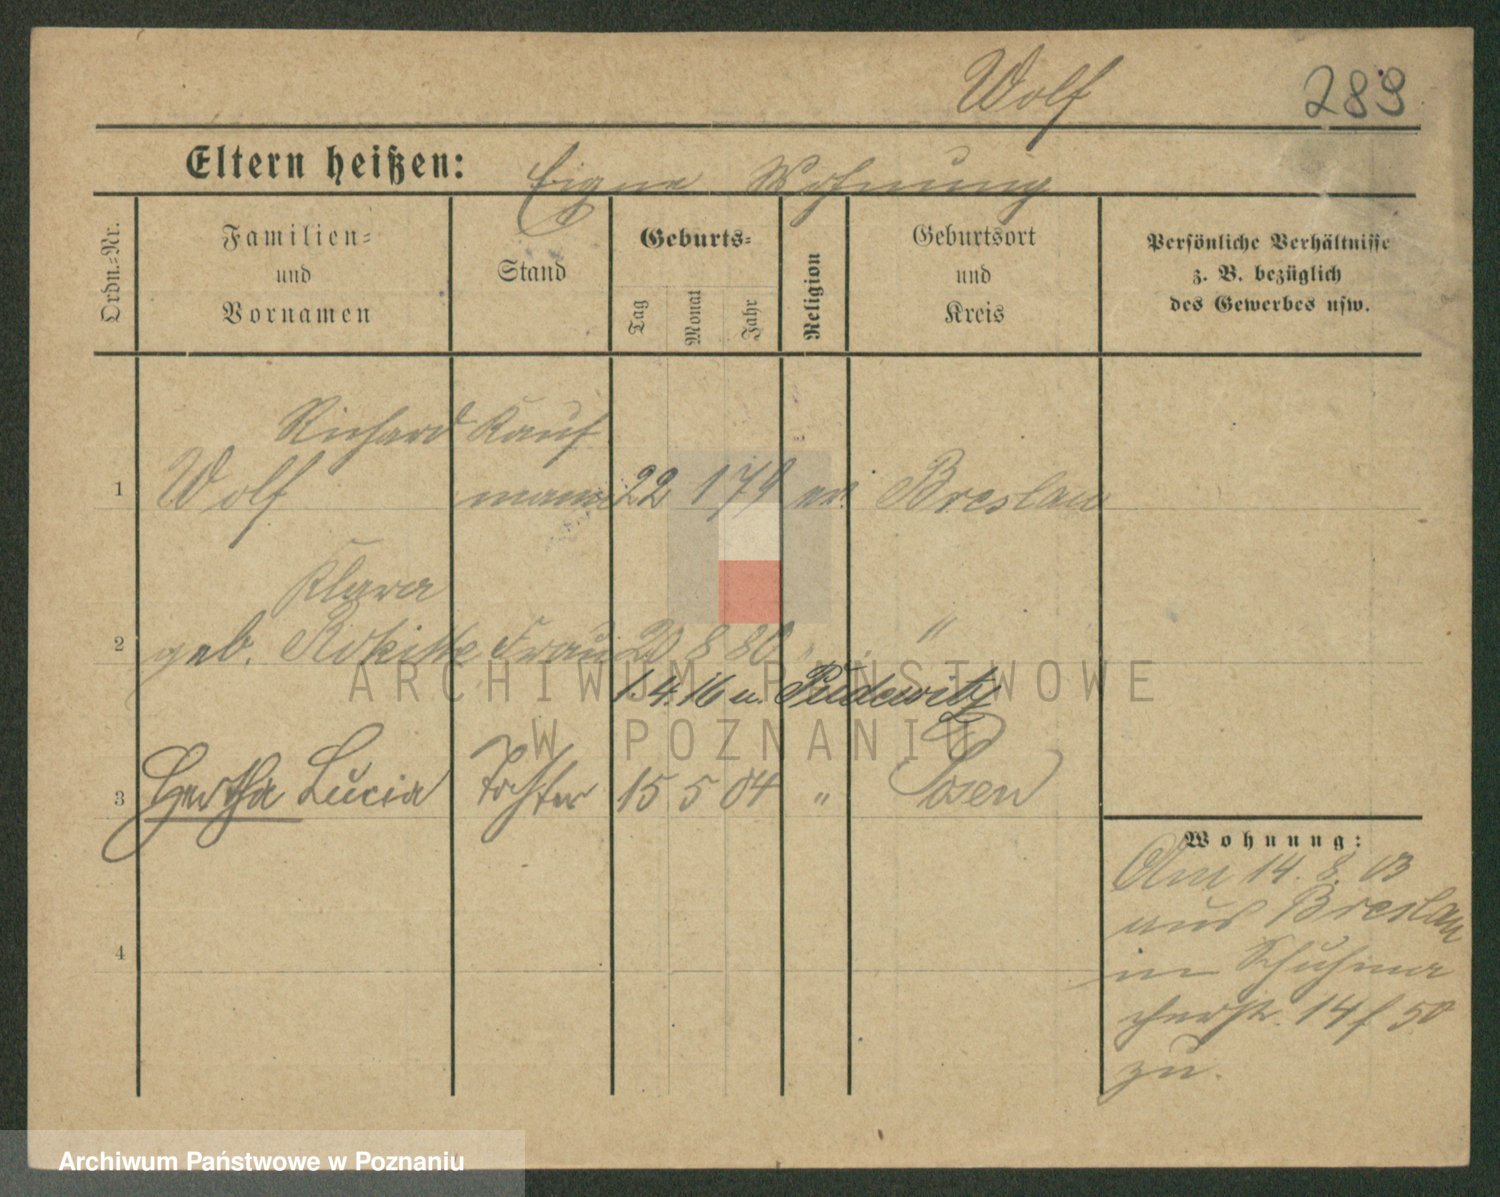 Wolf 289
Eltern heißen: Eigne Wohnung
Ordn.-Nr.
Familien-
und
Vornamen
Stand
Geburts-
Tag
Monat
Jahr
Religion
Geburtsort
und
Kreis
Persönliche Verhältnisse
z. B. bezüglich
des Gewerbes usw.
Richard Kauf
1 Wolf mann 22 1 79 ev. Breslau
Klara
2 geb. Frau 20 8 80 " "
1.4.16 n. Pudewitz
3 Hertha Lucia Tochter 15 5 04 " Posen
4
Wohnung:
Am 14. 8. 03
aus Breslau
in Schuhma
cherstr. 14 f 50
zu.
ARCHIWUM PAŃSTWOWE
W POZNANIU
Archiwum Państwowe w Poznaniu